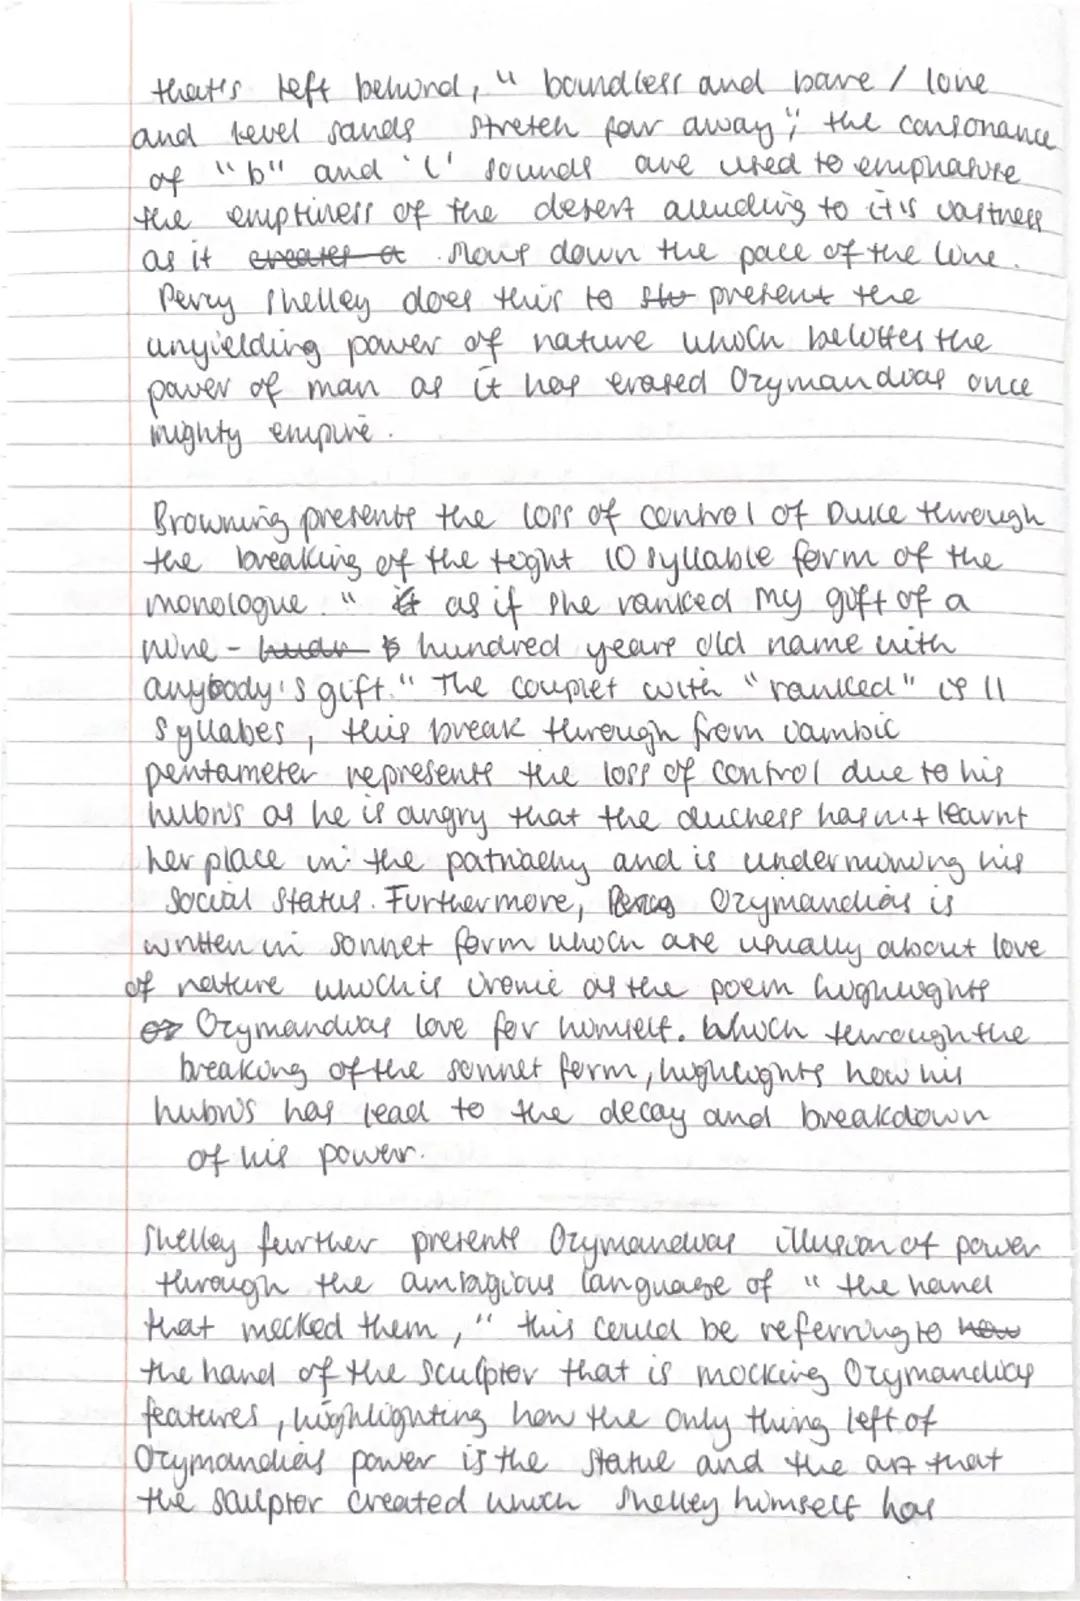 that's left behind, " boundless and bare / lone
and level sands stretch far away"; the consonance
of "b" and 'l' sounds are used to emphasise
the emptiness of the desert alluding to it's vastness
as it creates a slows down the pace of the line.
Percy Shelley does this to sho present the
unyielding power of nature which belittles the
power of man as it has erased Ozymandias once
mighty empire.
Browning presents the loss of control of Duke through
the breaking of the tight 10 syllable form of the
monologue. " it as if she ranked my gift of a
nine - hudr hundred years old name with
anybody's gift." The couplet with "ranked" is 11
syllabes, this break through from iambic
pentameter represents the loss of control due to his
hubris as he is angry that the duchess hasn't learnt
her place in the patriachy and is undermining his
social status. Furthermore, Percy Ozymandias is
written in sonnet form which are usually about love
of nature which is ironic as the poem highlights
oz Ozymandias love for himself. Which through the
breaking of the sonnet form, highlights how his
hubris has lead to the decay and breakdown
of his power.
Shelley further presents Ozymandias illusion of power
through the ambigious language of " the hand
that mocked them," this could be referring to how
the hand of the sculptor that is mocking Ozymandias
features, highlighting how the only thing left of
Ozymandias power is the statue and the art that
the sculptor created which Shelley himself has